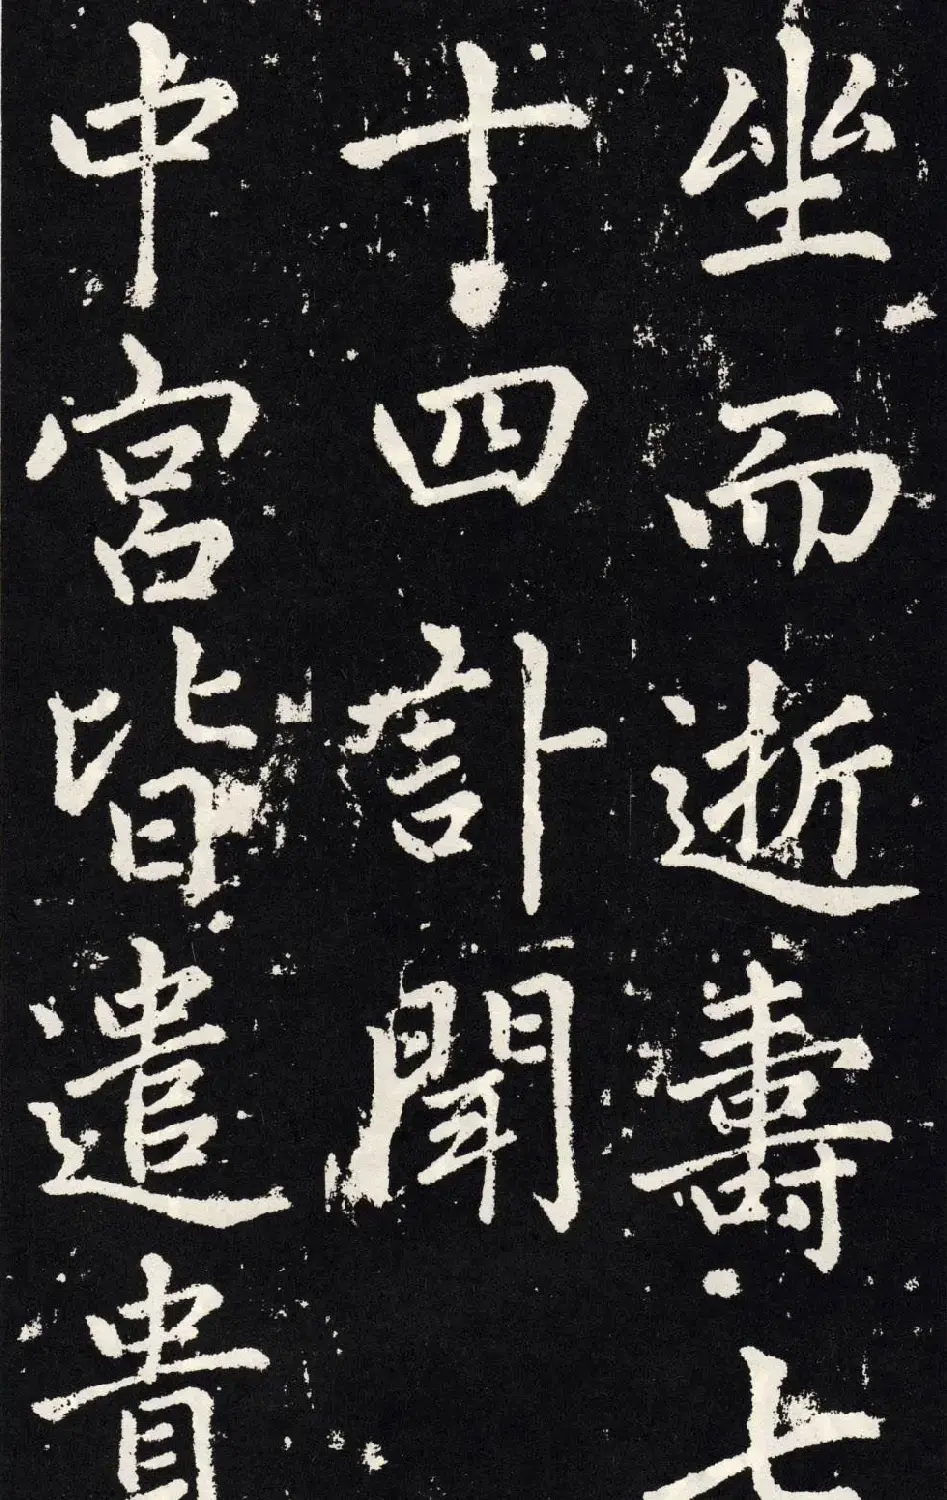 坐而逝壽七
十四訃聞
中宮皆遣貴